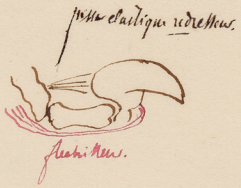 pièce elastique redresseur.
flechisseur.